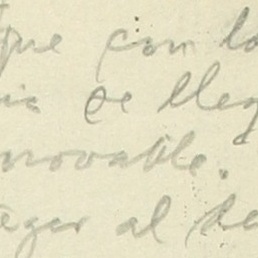 que con la
ia se lleg
novable.
eger al se